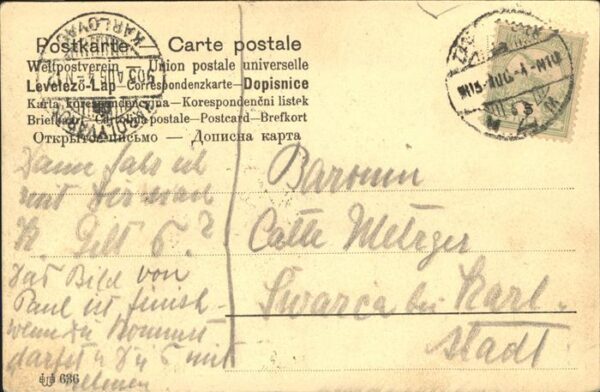 Postkarte Carte postale
Weltpostverein — Union postale universelle
Levelező-Lap—Correspondenzkarte—Dopisnice
Karta korespondencyjna—Korespondenční listek
Briefkaart—Cartolina postale—Postcard—Brefkort
Открытое письмо — Дописна карта
KARLOVAC
903 AUG 4
KÁROLYVÁROS
903 AUG 4
Dann
mit Dir
K. Gelt 6.?
Das Bild von
Paul ist finish
wenn du kommst
darfst du 's mit
nehmen
Baronin
Catte Metzger
Swarca bei Karl-
stadt
636